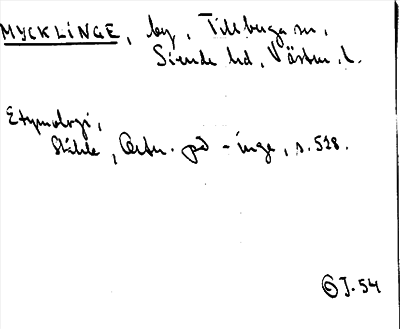 MYCKLINGE, by, Tillberga sn,
Siende hd, Västm. l.
Etymologi,
Ståhle, Ortn. på -inge, s. 528.
J-54